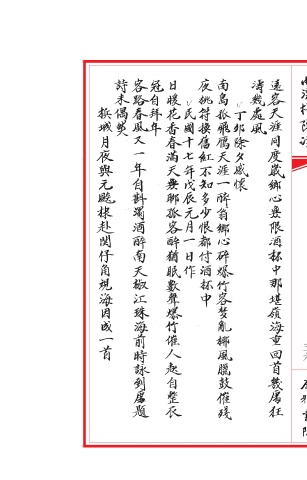 遠客天涯同度歲鄉心無限酒杯中那堪嶺海重回首幾屠狂
濤幾處風
丁卯除夕感懷
南島孤飛雁天涯一醉翁鄉心碎爆竹客鬢亂椰風臘鼓催殘
夜桃符換舊紅不知多少恨都付酒杯中
民國十七年戊辰元月一日作
日暖花香春滿天無聊孤客醉猶眠數聲爆竹催人起自整衣
冠自拜年
客路春風又一年自斟濁酒醉南天椒江珠海前時詠到處題
詩未偶然
檳城月夜與元 棣赴関仔角觀海因成一首